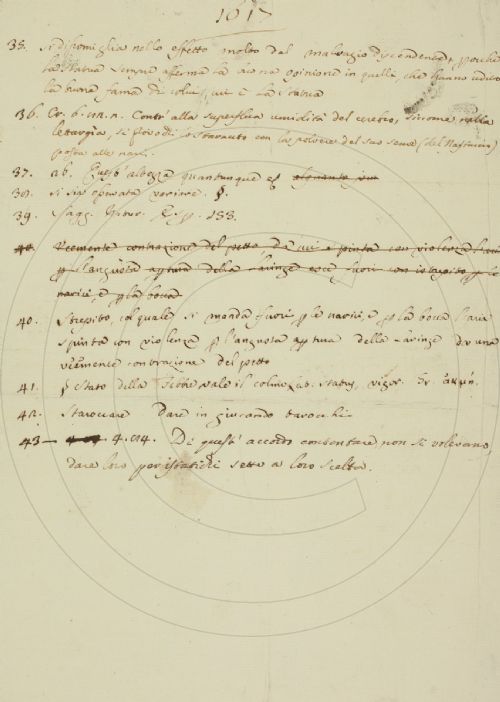 1617
35. si dissomiglia nello effetto molto dal malvagio discendente, perchè
la statua sempre afferma la buona opinione in quelli, che hanno udito
la buona fama di colui, cui è la statua
36. Cr. 6. Contr' alla superflua umidità del cerebro, siccome nella
letargia, si provochi lo starnuto con la polvere del suo seme (del Nasturcio)
posta alle nari.
37. ab. Quest' altezza quantunque
38. si sia opinata varie
39. Sagg. Natur. Esp. 133.
40. Veemente contrazione del petto, da cui è spinta con violenza l'aria
p l'angusta apertura della laringe esce fuori con istrepito p le
narici, e p la bocca
40. Strepito, col quale si manda fuori p le narici, e p la bocca l'aria
spinta con violenza p l'angusta aptura della laringe da una
veemente contrazione del petto
41. Stato della Febbre vale il colmo, Lat. status, vigor. Gr.
42. Taroccare Dare in giucando tarocchi.
43 — 4. 114. Di quest' accordo contentare non si volevano,
dare loro per istatichi sette a loro scelta.